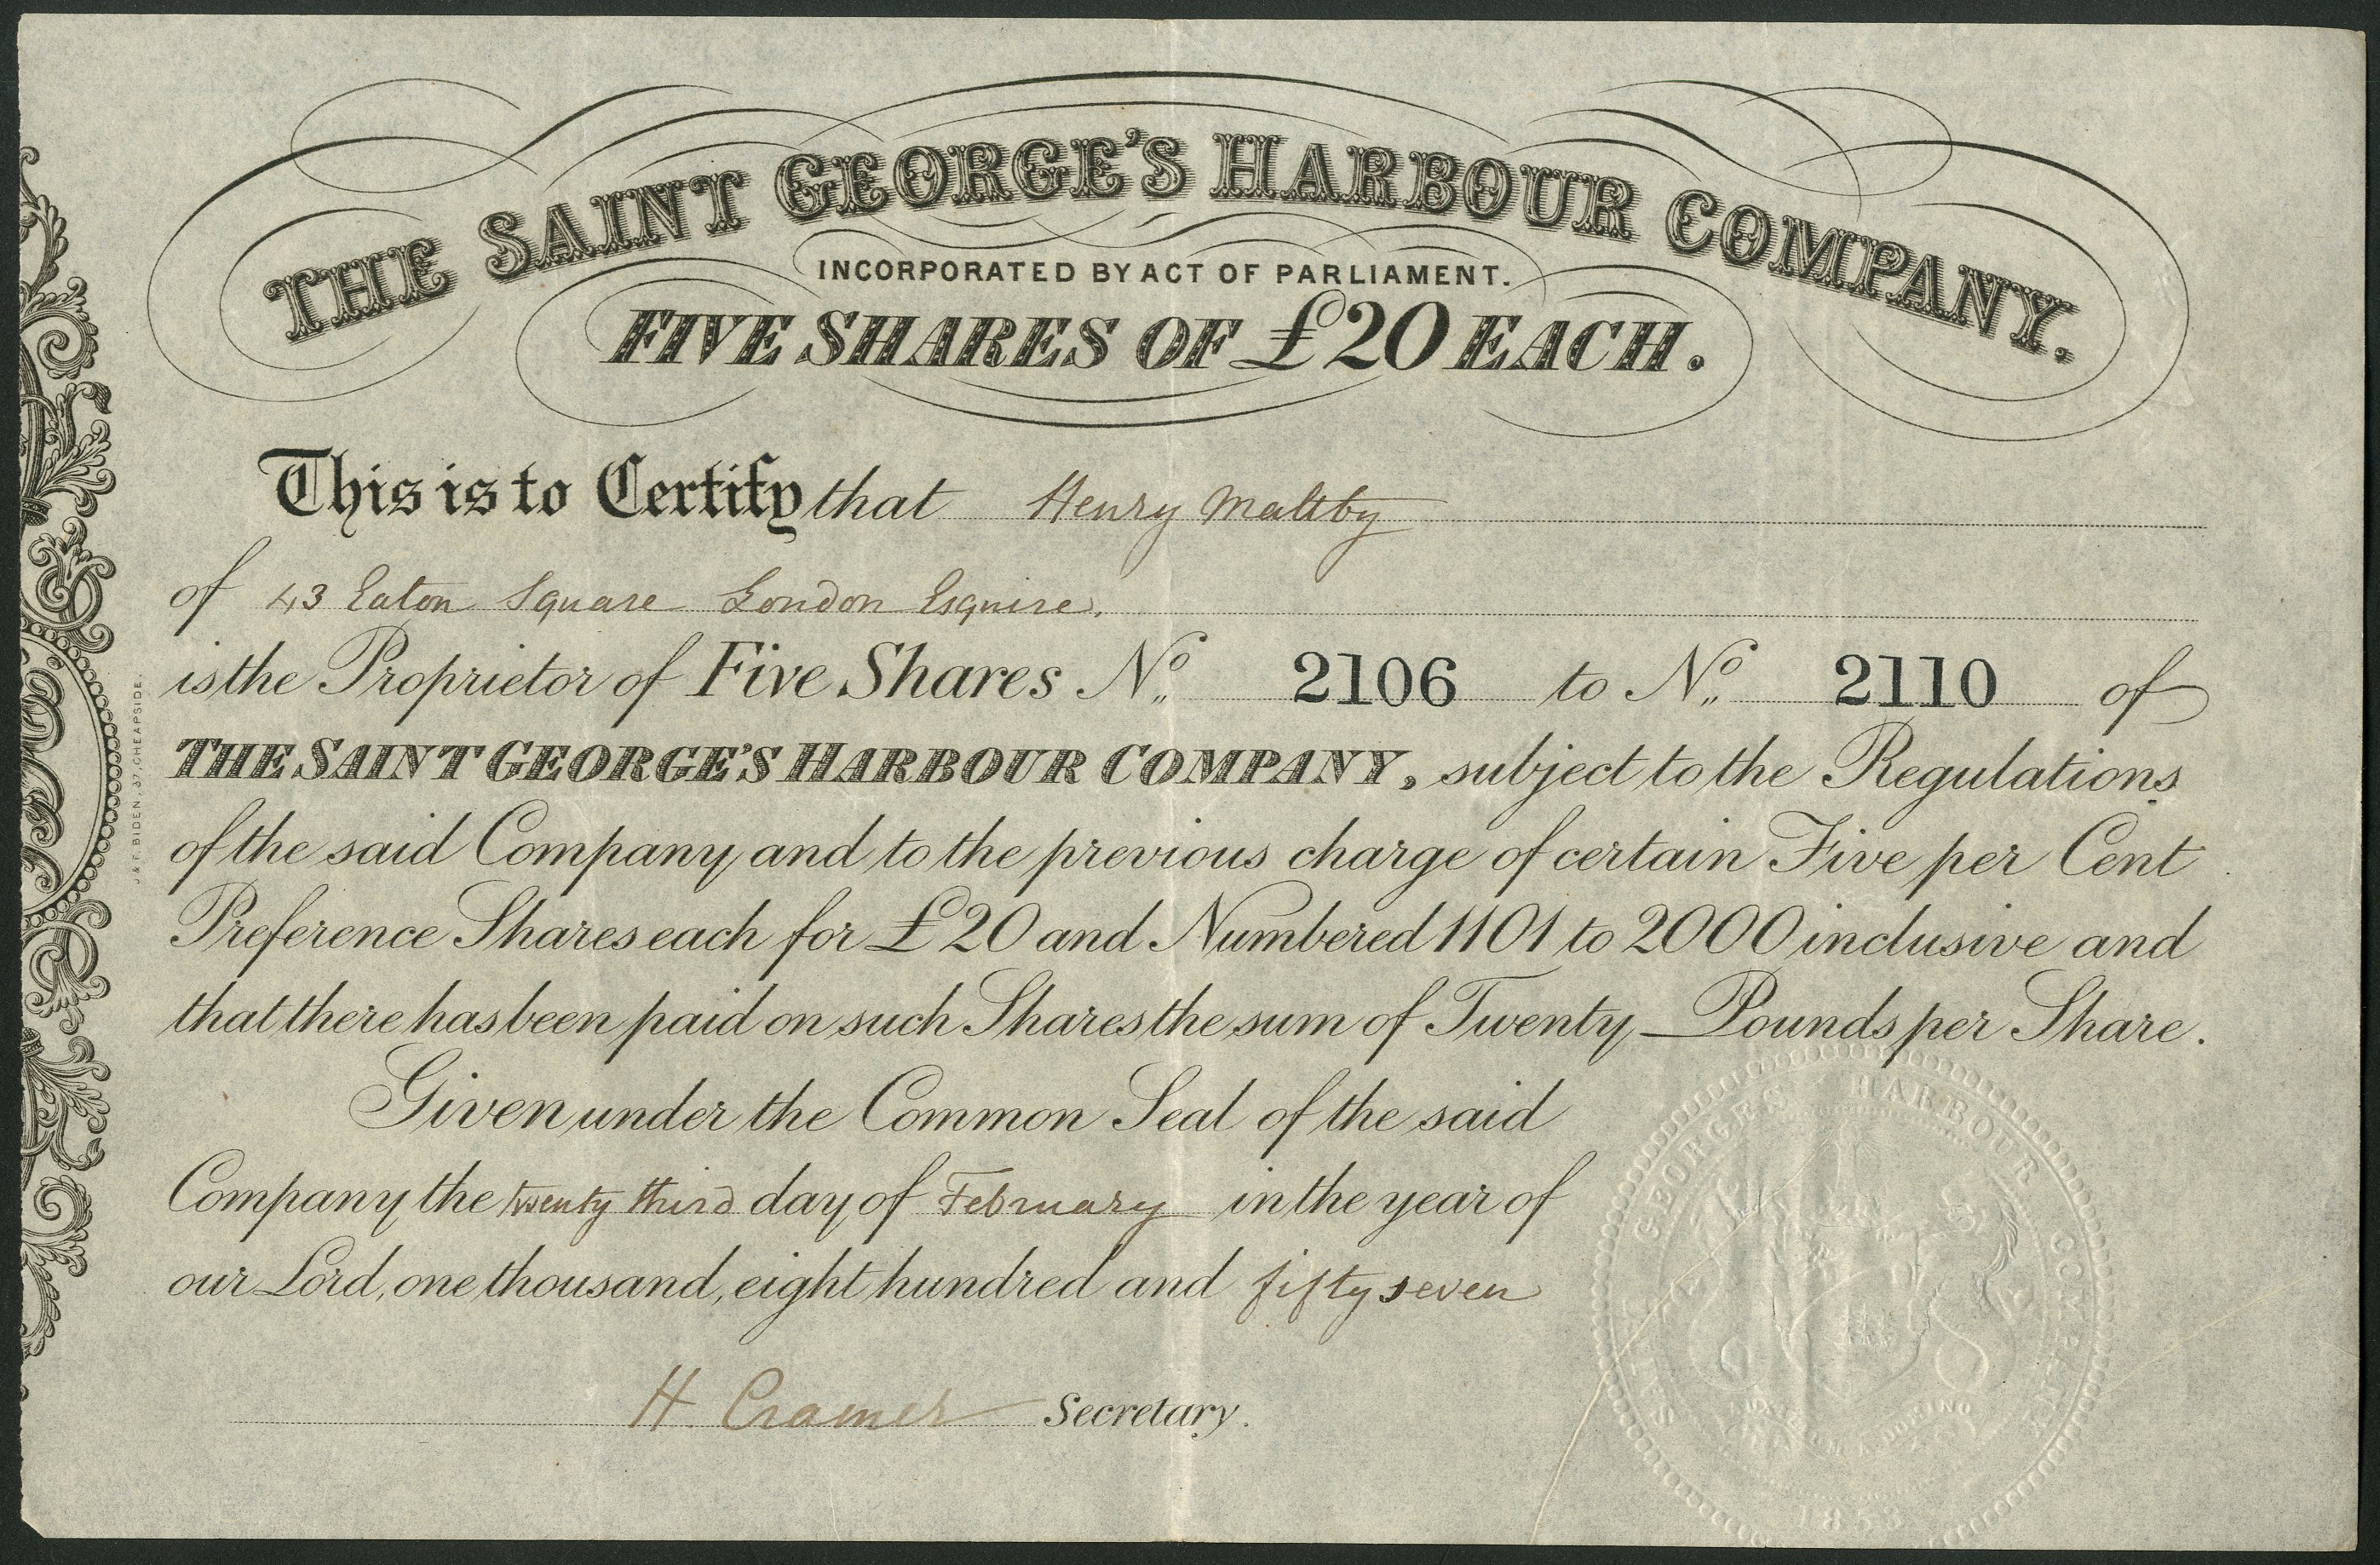 THE SAINT GEORGE'S HARBOUR COMPANY.
INCORPORATED BY ACT OF PARLIAMENT.
FIVE SHARES OF £20 EACH.
This is to Certify that Henry Maltby
of 43 Eaton Square London Esquire.
is the Proprietor of Five Shares No. 2106 to No. 2110 of
THE SAINT GEORGE'S HARBOUR COMPANY, subject to the Regulations
of the said Company and to the previous charge of certain Five per Cent
Preference Shares each for £20 and Numbered 1101 to 2000 inclusive and
that there has been paid on such Shares the sum of Twenty Pounds per Share.
Given under the Common Seal of the said
Company the twenty third day of February in the year of
our Lord, one thousand, eight hundred and fifty seven
H. Cramer Secretary.
J & F. BIDEN, 37, CHEAPSIDE.
SAINT GEORGES HARBOUR COMPANY
1853